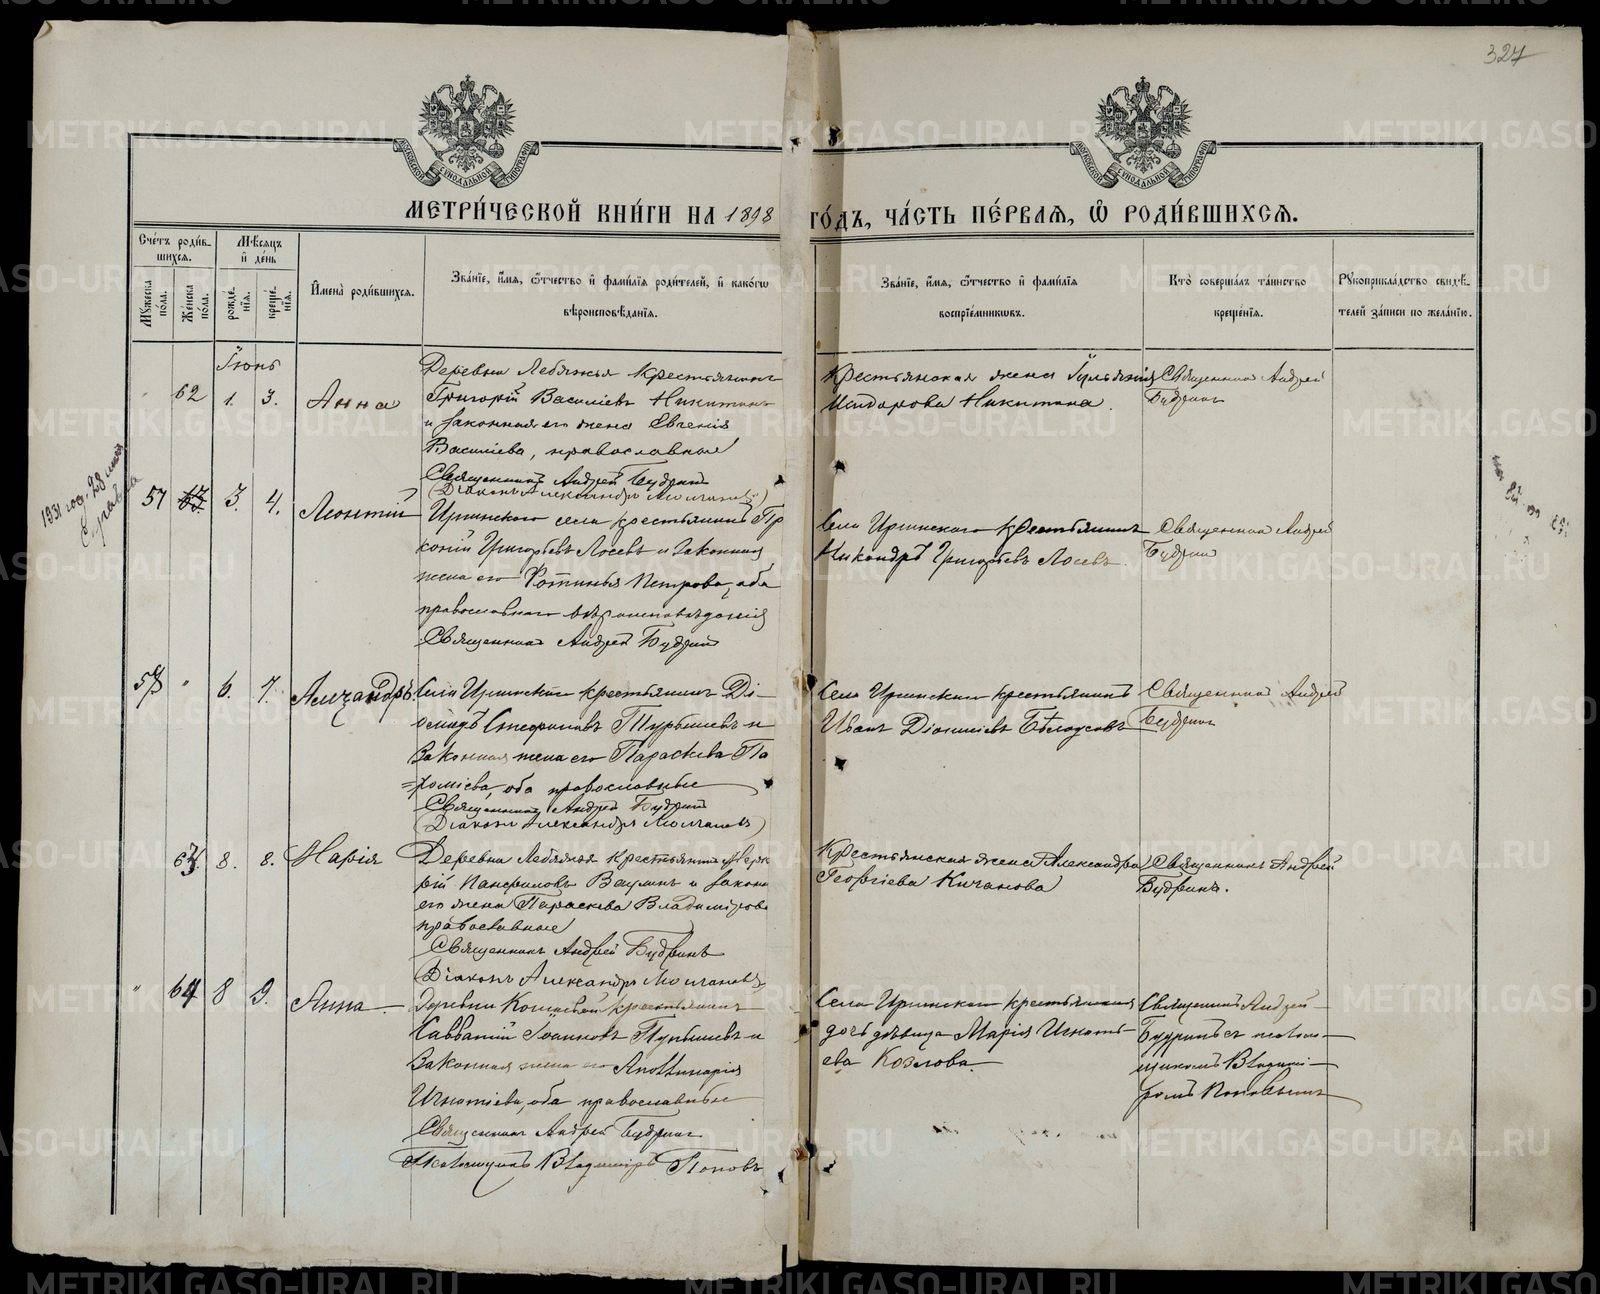 327
МЕТРИ́ЧЕСКОЙ КНИ́ГИ НА 1898 ГО́ДЪ, ЧА́СТЬ ПЕ́РВАЯ, Ѿ РОДИ́ВШИХСЯ.
Сче́тъ роди́в-
шихся.
Мѣ́сяцъ
и҆ де́нь
Мꙋ́жеска
по́ла.
Же́нска
по́ла.
рожде́-
нїѧ.
креще́-
нїѧ.
И҆мена̀ роди́вшихся.
Зва́нїе, и҆́мѧ, ѻ҆́тчество и҆ фами́лїѧ роди́телей, и҆ како́гѡ
вѣроисповѣ́данїѧ.
Зва́нїе, и҆́мѧ, ѻ҆́тчество и҆ фами́лїѧ
воспрїе́мникѡвъ.
Кто̀ соверша́лъ та́инство
креще́нїѧ.
Рꙋкоприкла́дство свидѣ́-
телей за́писи по жела́нїю.
Іюнь
62 1. 3. Анна
Деревни Лебяжья крестьянинъ
Григорій Василіевъ Никитинъ
и законная его жена Евгенія
Василіева, православные
Священникъ Андрей Будринъ
(Діаконъ Александръ Молчановъ)
Крестьянская жена
Никитина.
Священникъ Андрей
Будринъ
1931 год. 28
Справка
57 3. 4. Леонтій
Иргинскаго села крестьянинъ Пр
копій Григорьевъ Лосевъ и законная
жена его Фотинья Петрова, оба
православнаго вѣроисповѣданія
Священникъ Андрей Будринъ
Села Иргинскаго крестьянинъ
Никандръ Григорьевъ Лосевъ.
Священникъ Андрей
Будринъ
58 " 6. 7. Александръ.
Села Иргинскаго крестьянинъ Ді-
омидъ Стефановъ Турышевъ и
законная жена его Параскева Па
=хоміева, оба православные
Священникъ Андрей Будринъ
(Діаконъ Александръ Молчановъ)
Села Иргинскаго крестьянинъ
Иванъ Діонисіевъ Бѣлоусовъ
Священникъ Андрей
Будринъ
63. 8. 8. Марія
Деревни Лебяжья крестьянинъ
Панфиловъ Ваулинъ и законн
его жена Параскева Владимірова
православные
Священникъ Андрей Будринъ
Діаконъ Александръ Молчановъ
Крестьянская жена Александра
Георгіева Кичанова
Священникъ Андрей
Будринъ.
" 64 8 9. Анна
Деревни крестьянинъ
Савватій Іоанновъ Турышевъ и
законная жена его Апоllинарія
Игнатіева, оба православные
Священникъ Андрей Будринъ
Псаломщикъ Владиміръ Поповъ
Села Иргинскаго крестьянская
дочь дѣвица Марія Игнать-
ева Козлова
Священникъ Андрей
Будринъ съ псалом-
щикомъ Владимі-
ромъ Поповымъ
METRIKI.GASO-URAL.RU